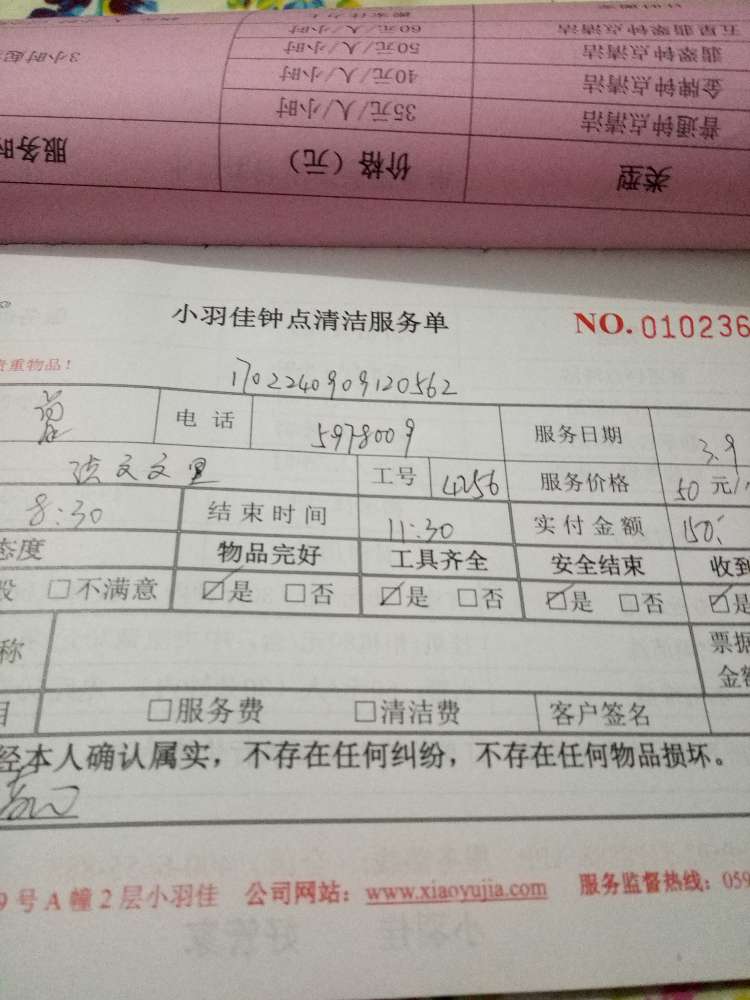 搬家佳力士
五星翡翠钟点清洁 60元/人/小时
翡翠钟点清洁 50元/人/小时
金牌钟点清洁 40元/人/小时 3小时起
普通钟点清洁 35元/人/小时
类型 价格（元） 服务时
小羽佳钟点清洁服务单 NO.010236
贵重物品！
1702240909120562
电话 5978009 服务日期 3.9
工号 4256 服务价格 50元/
8:30 结束时间 11:30 实付金额 150
态度 物品完好 工具齐全 安全结束 收到
般 □不满意 ☑是 □否 ☑是 □否 ☑是 □否 ☑是
称 票据
金额
目 □服务费 □清洁费 客户签名
经本人确认属实，不存在任何纠纷，不存在任何物品损坏。
9号A幢2层小羽佳 公司网站：www.xiaoyujia.com 服务监督热线：059